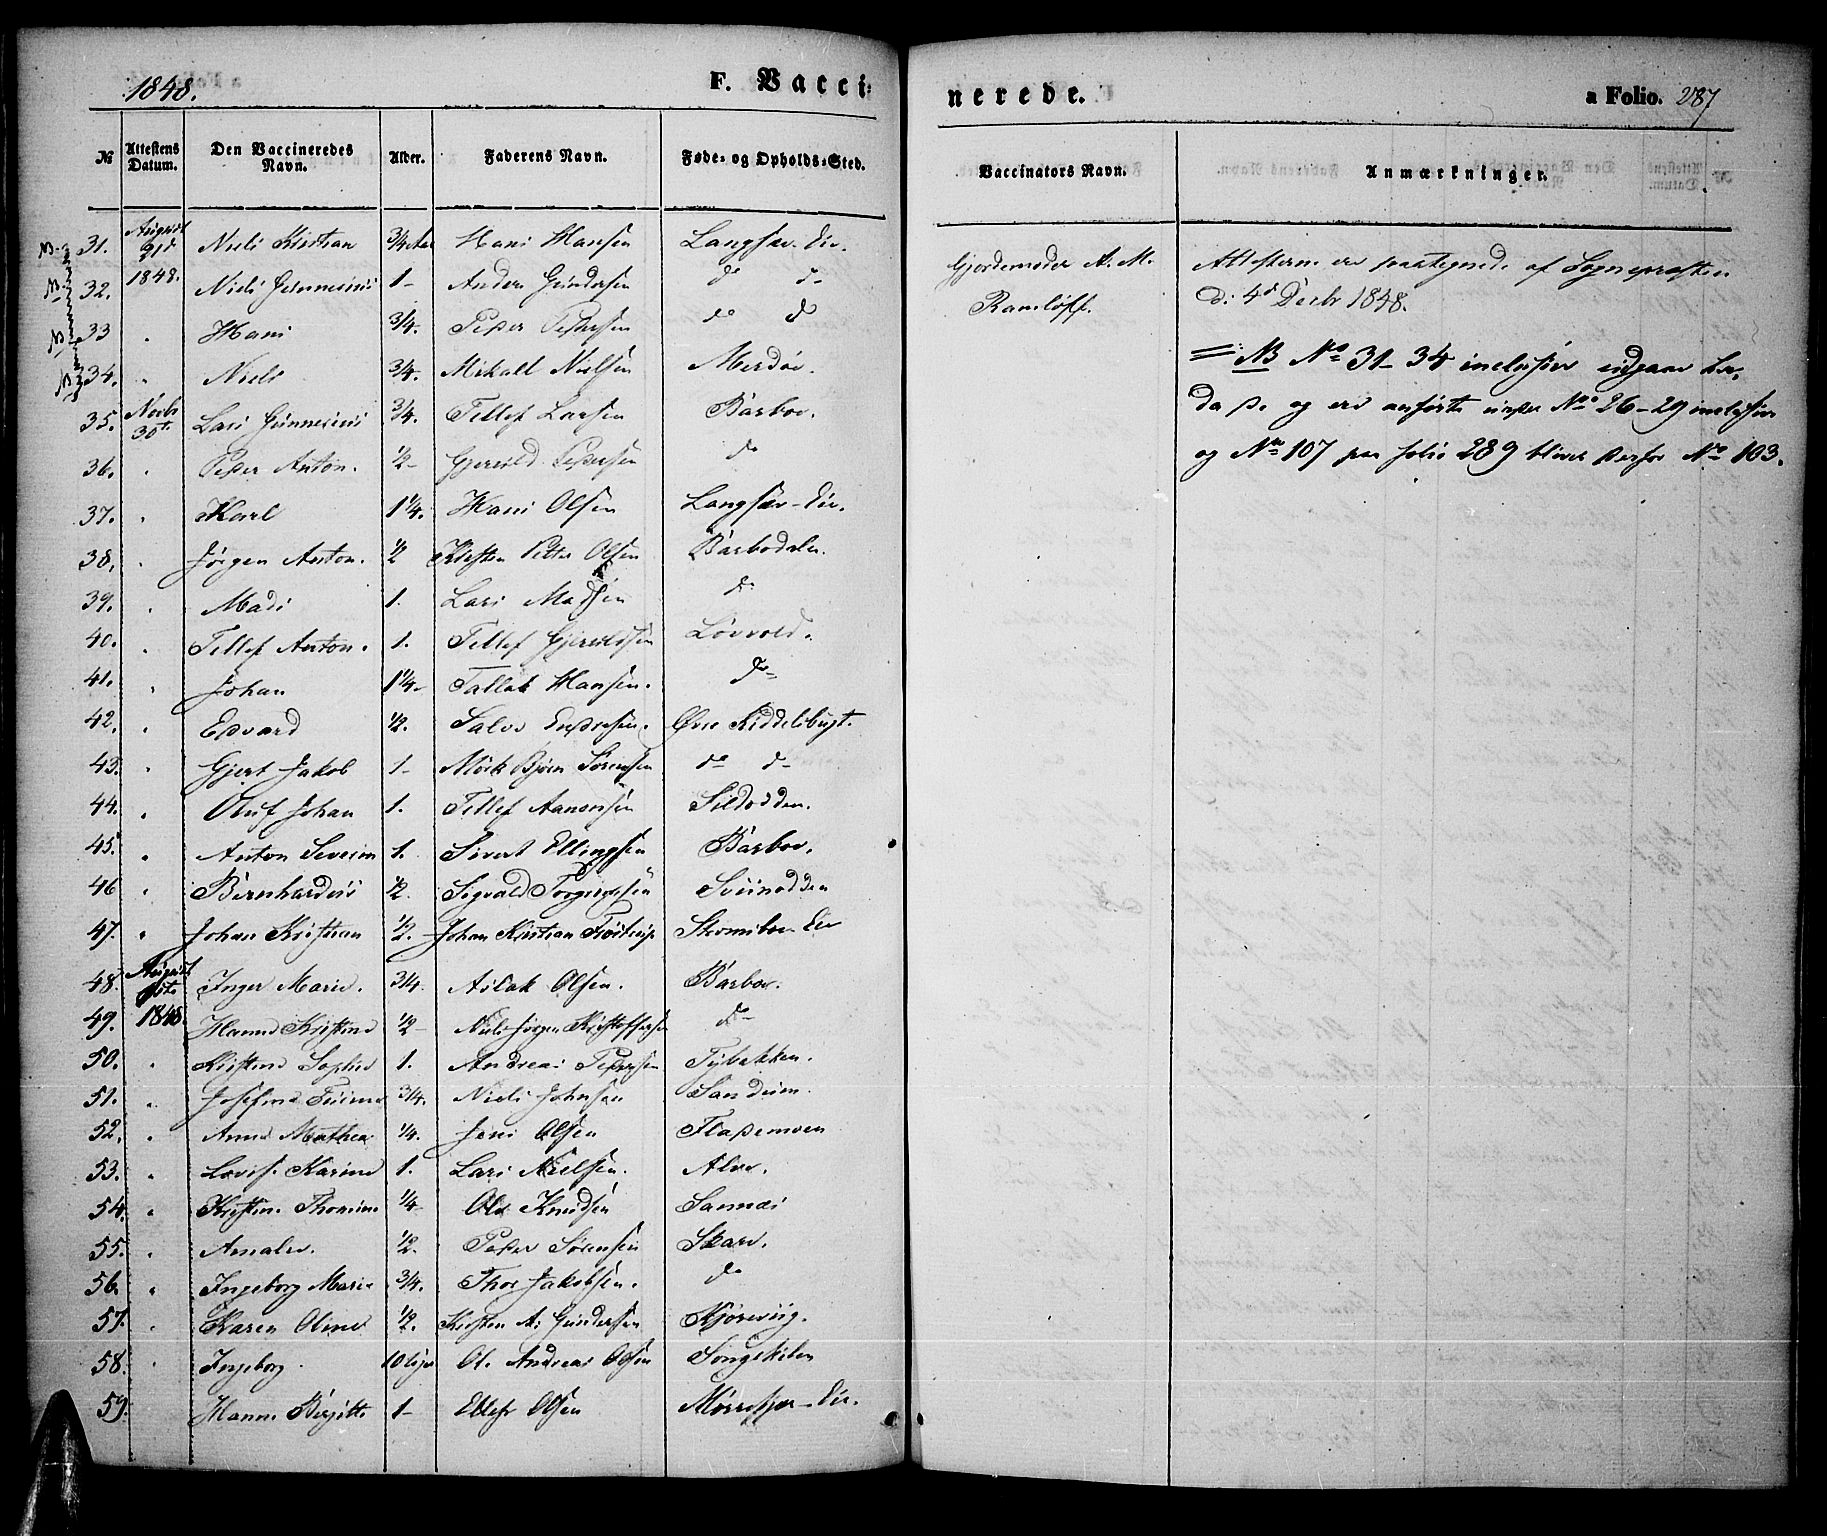 1848. F. Vacci= nerede. a Folio. 287
№ Attestens Datum. Den Vaccineredes Navn. Alder. Faderens Navn. Føde= og Opholds=Sted. Vaccinators Navn. Anmærkninger.
31. August 31d Niels Kristian 3/4 Aar Hans Hansen Langsæv. Eie. Gjordemoder A. M. Attesterne ere paategnede af Sognepræsten
32. 1848. Niels Gunnerius 1- Anders Gundersen do do Ramløff. d: 4d Decbr 1848.
33 Hans 3/4. Peder Pedersen do do
34. Niels 3/4. Mikall Nielsen Merdøe. NB No 31-34 inclusive udgaaer
35. Novbr 30te Lars Gunnerius 3/4. Tellef Larsen Barboe. og ere anførte under No 26-29 inclusive
36. Peder Anton. 1/2- Gjeruld Pedersen do og No 107 paa folio 289 bliver derfor No 103.
37. Karl 1 1/4. Hans Olsen Langsæv-Eie.
38. Jørgen Anton. 1/2 Kristen Petter Olsen Barbodalen.
39. Mads 1. Lars Madsen do
40. Tellef Anton. 1. Tellef Gjeruldsen Løvvold.
41. Johan 1 1/4- Tallak Hansen. do
42. Edvard 1/2. Salve Endresen. Øvre Kiddelsbugt.
43. Gjert Jakob 1- Mørk Bjørn Sørensen do do
44. Oluf Johan 1. Tellef Aanonsen Sildodden.
45. Anton Severin 1. Sivert Ellingsen Barboe.
46 Bernhardus 1/2. Sigvald Torgersen Sveinodden
47. Johan Kristian 1/2. Johan Kristian Strømsboe Eie
48. August 1848 Inger Marie. 3/4. Aslak Olsen. Barboe.
49. Hanne Kristine 1/2- Niels Jørgen Kristoffersen do
50. Kristine Sophie 1. Andreas Pedersen Tybakken.
51. Josefine 3/4. Niels Johnsen Sandum.
52. Anne Mathea 1/4. Jens Olsen Fladmoen
53. Lovise Karine 1. Lars Nielsen. Alve.
54. Kristine Thomine 1/4- Ole Knudsen Sannæs
55. Amalie. 1/2. Peder Sørensen Skare.
56. Ingeborg Marie 3/4. Thor Jakobsen. do
57. Karen Oline 1/2. Kristen A: Gundersen Kjørevig.
58. Ingeborg. 10 Uger Ole Andreas Olsen Songekilen
59. Hanne Birgitte 1- Ellef Olsen Mørefjær-Eie.